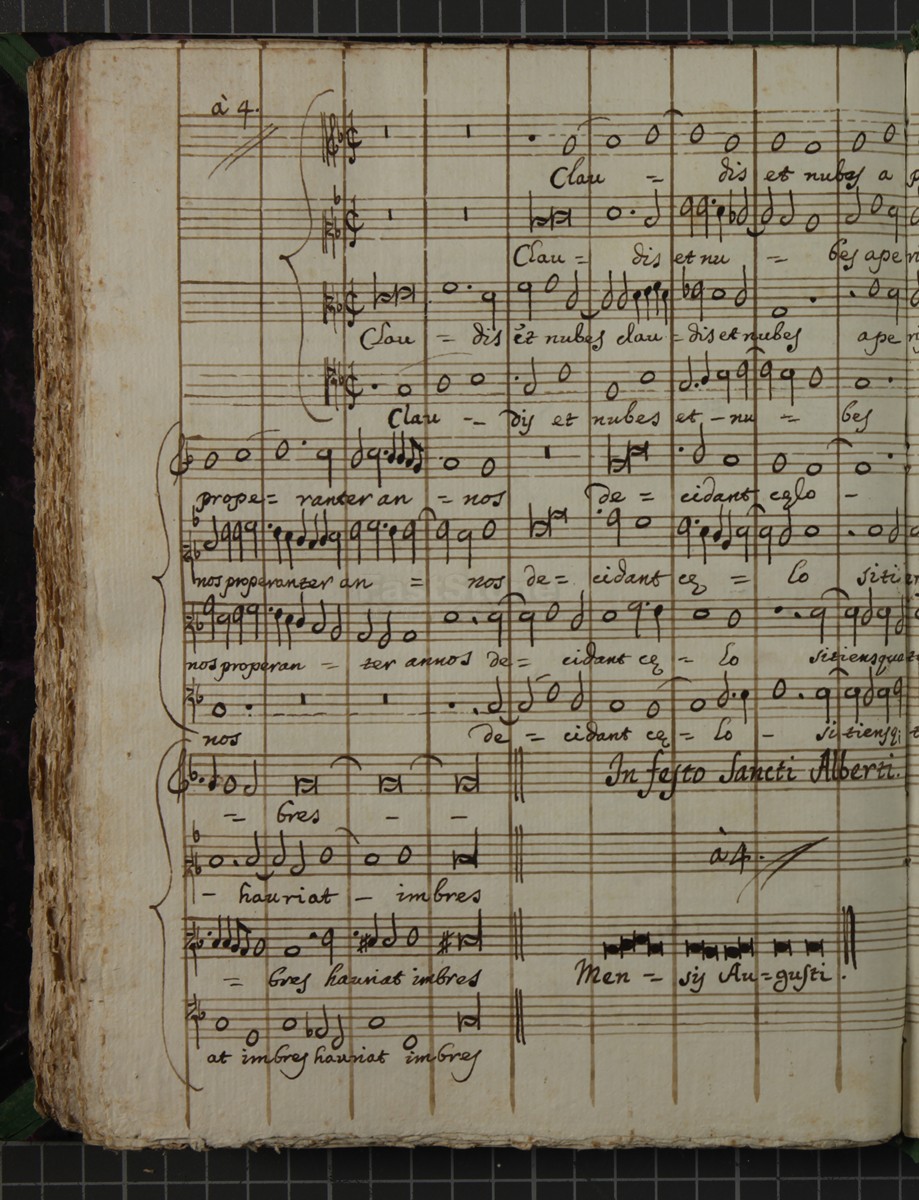 à 4.
Clau = dis et nubes a
Clau = dis et nu = bes ape
Clau = dis et nubes clau = dis et nubes ape
Clau -- dis et nubes et - nu = bes
prope = ranter an = nos de = cidant cęlo -
nos properanter an = nos de = cidant cę = lo siti
nos properan = ter annos de = cidant cę = lo sitiensque
nos de = cidant cę = lo - sitiensq;
= bres - - In festo Sancti Alberti.
à 4.
- hauriat - imbres
= bres hauriat imbres Men = sis Au = gusti.
at imbres hauriat imbres